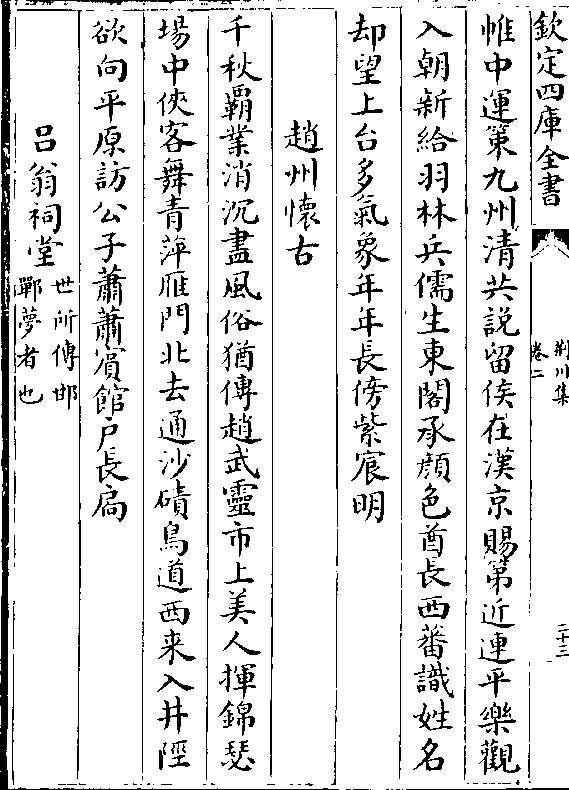 欽定四庫全書
荆川集
卷二
二十三
帷中運策九州清共說留侯在漢京賜第近連平樂觀
入朝新給羽林兵儒生東閣承顔色酋長西蕃識姓名
却望上台多氣象年年長傍紫宸明
趙州懷古
千秋霸業消沉盡風俗猶傳趙武靈市上美人揮錦瑟
場中俠客舞青萍雁門北去通沙磧鳥道西来入井陘
欲向平原訪公子蕭蕭賓館戶長扃
吕翁祠堂
世所傳邯
鄲夢者也